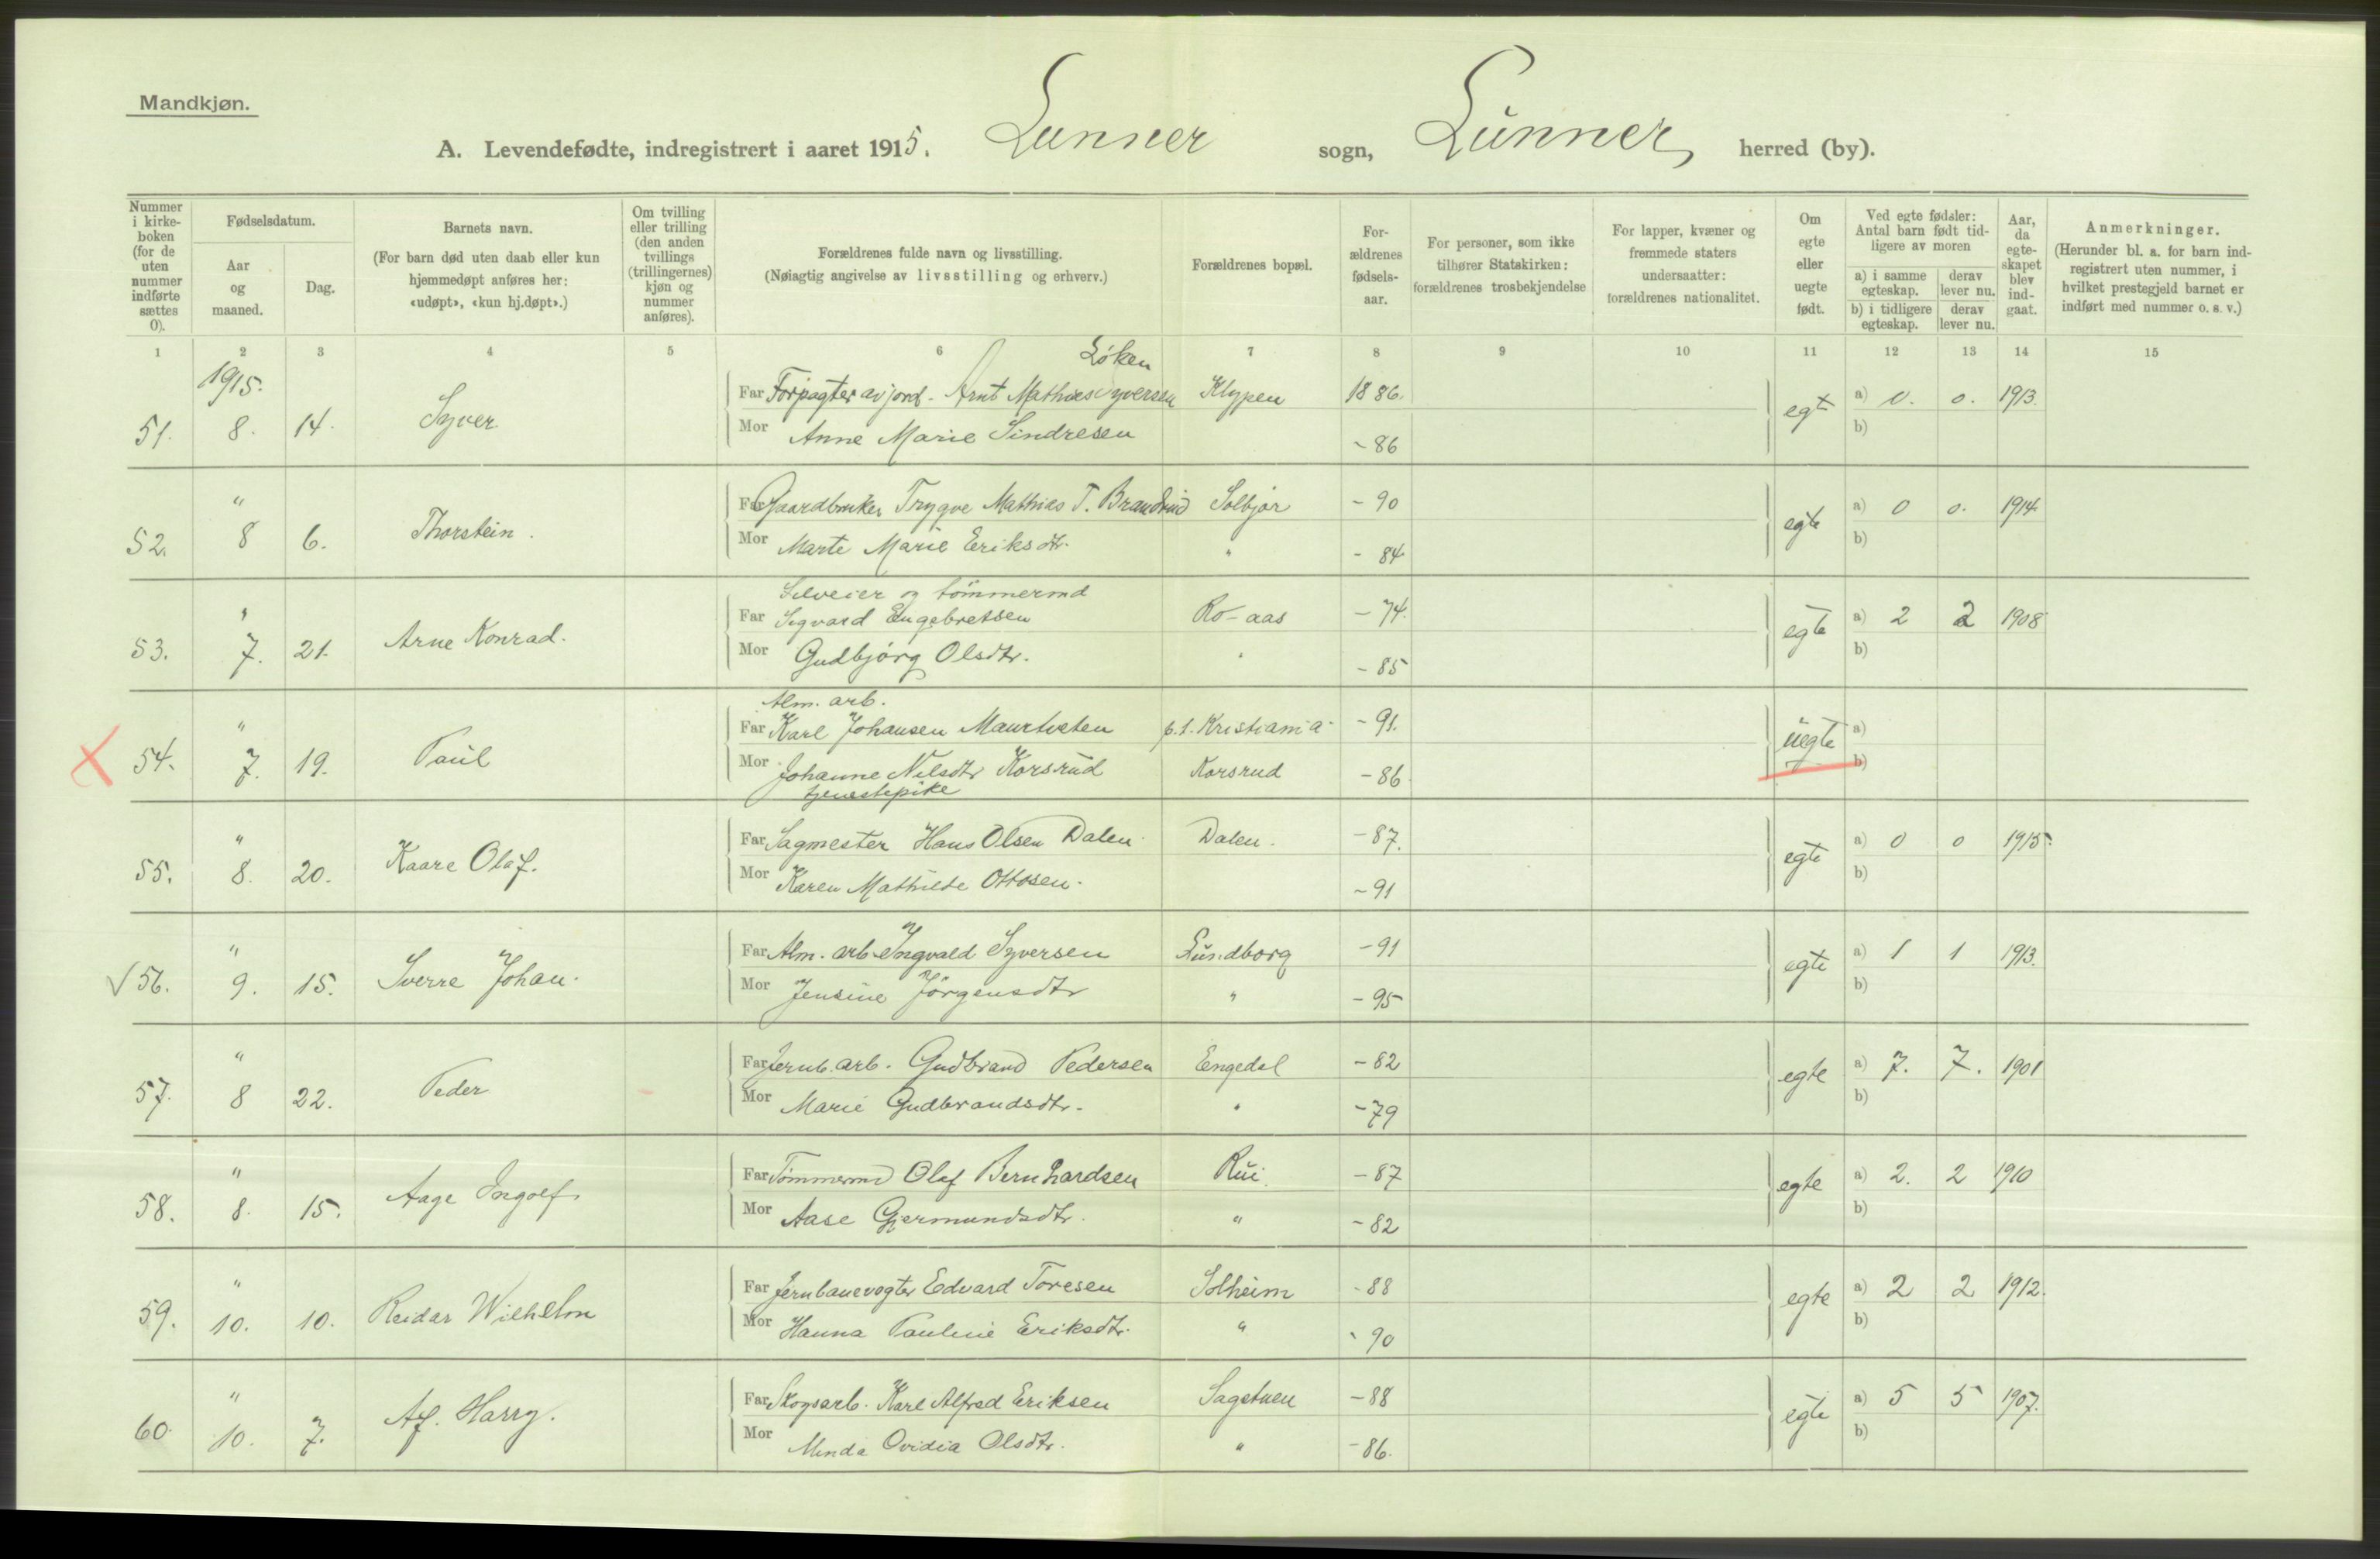 Mandkjøn.
A. Levendefødte, indregistrert i aaret 1915. Lunner sogn, Lunner herred (by).
Nummer i kirke-boken (for de uten nummer indførte sættes 0).
Fødselsdatum.
Aar og maaned.
Dag.
Barnets navn.
(For barn død uten daab eller kun hjemmedøpt anføres her: «udøpt», «kun hj.døpt».)
Om tvilling eller trilling (den anden tvillings (trillingernes) kjøn og nummer anføres).
Forældrenes fulde navn og livsstilling.
(Nøiagtig angivelse av livsstilling og erhverv.)
Forældrenes bopæl.
For-ældrenes fødsels-aar.
For personer, som ikke tilhører Statskirken: forældrenes trosbekjendelse
For lapper, kvæner og fremmede staters undersaatter: forældrenes nationalitet.
Om egte eller uegte født.
Ved egte fødsler: Antal barn født tid-ligere av moren
a) i samme egteskap.
derav lever nu.
b) i tidligere egteskap.
derav lever nu.
Aar, da egte-skapet blev ind-gaat.
Anmerkninger.
(Herunder bl. a. for barn ind-registrert uten nummer, i hvilket prestegjeld barnet er indført med nummer o. s. v.)
1 2 3 4 5 6 7 8 9 10 11 12 13 14 15
1915. Løken
Far Forpagter av jord. Arnt Mathias Syversen Klypen 1886. a) 0. 0. 1913.
51. 8. 14. Syver. egt
Mor Anne Marie Sindresen - 86 b)
" Far Gaardbruker Trygve Mathias T. Brandrud Solbjør - 90 a) 0 0. 1914.
52. 8 6. Thorstein. egte
Mor Marte Marie Eriksdtr. " - 84 b)
Selveier og tømmermd
" Far Sigvard Engebretsen Ro-aas - 74. a) 2 2 1908
53. 7. 21. Arne Konrad. egte
Mor Gudbjørg Olsdtr. " - 85 b)
Alm. arb.
" Far Karl Johansen p.t. Kristiania - 91. a)
54. 7. 19. Paul uegte
Mor Johanne Nilsdtr Korsrud Korsrud - 86. b)
tjenestepike
" Far Sagmester Hans Olsen Dalen. Dalen. - 87. a) 0 0 1915.
55. 8. 20. Kaare Olaf. egte
Mor Karen Mathilde Ottosen. - 91 b)
" Far Alm. arb. Ingvald Syversen Lundborg - 91 a) 1 1 1913.
✓56. 9. 15. Sverre Johan. egte
Mor Jensine Jørgensdtr " - 95 b)
" Far Jernb. arb. Gudbrand Pedersen Engedal - 82 a) 7. 7. 1901
57. 8 22. Peder egte
Mor Marie Gudbrandsdtr. " - 79 b)
" Far Tømmermd Olaf Bernhardsen Rui. - 87 a) 2. 2 1910
58. 8. 15. Aage Ingolf. egte
Mor Aase Gjermundsdtr. " - 82 b)
" Far Jernbanevogter Edvard Toresen Solheim - 88 a) 2 2 1912.
59. 10. 10. Reidar Wilhelm egte
Mor Hanna Pauline Eriksdtr. " - 90 b)
" Far Skogsarb. Karl Alfred Eriksen Sagstuen - 88 a) 5 5 1907.
60. 10. 7. Alf. Harry. egte
Mor Minda Ovidia Olsdtr. " - 86. b)